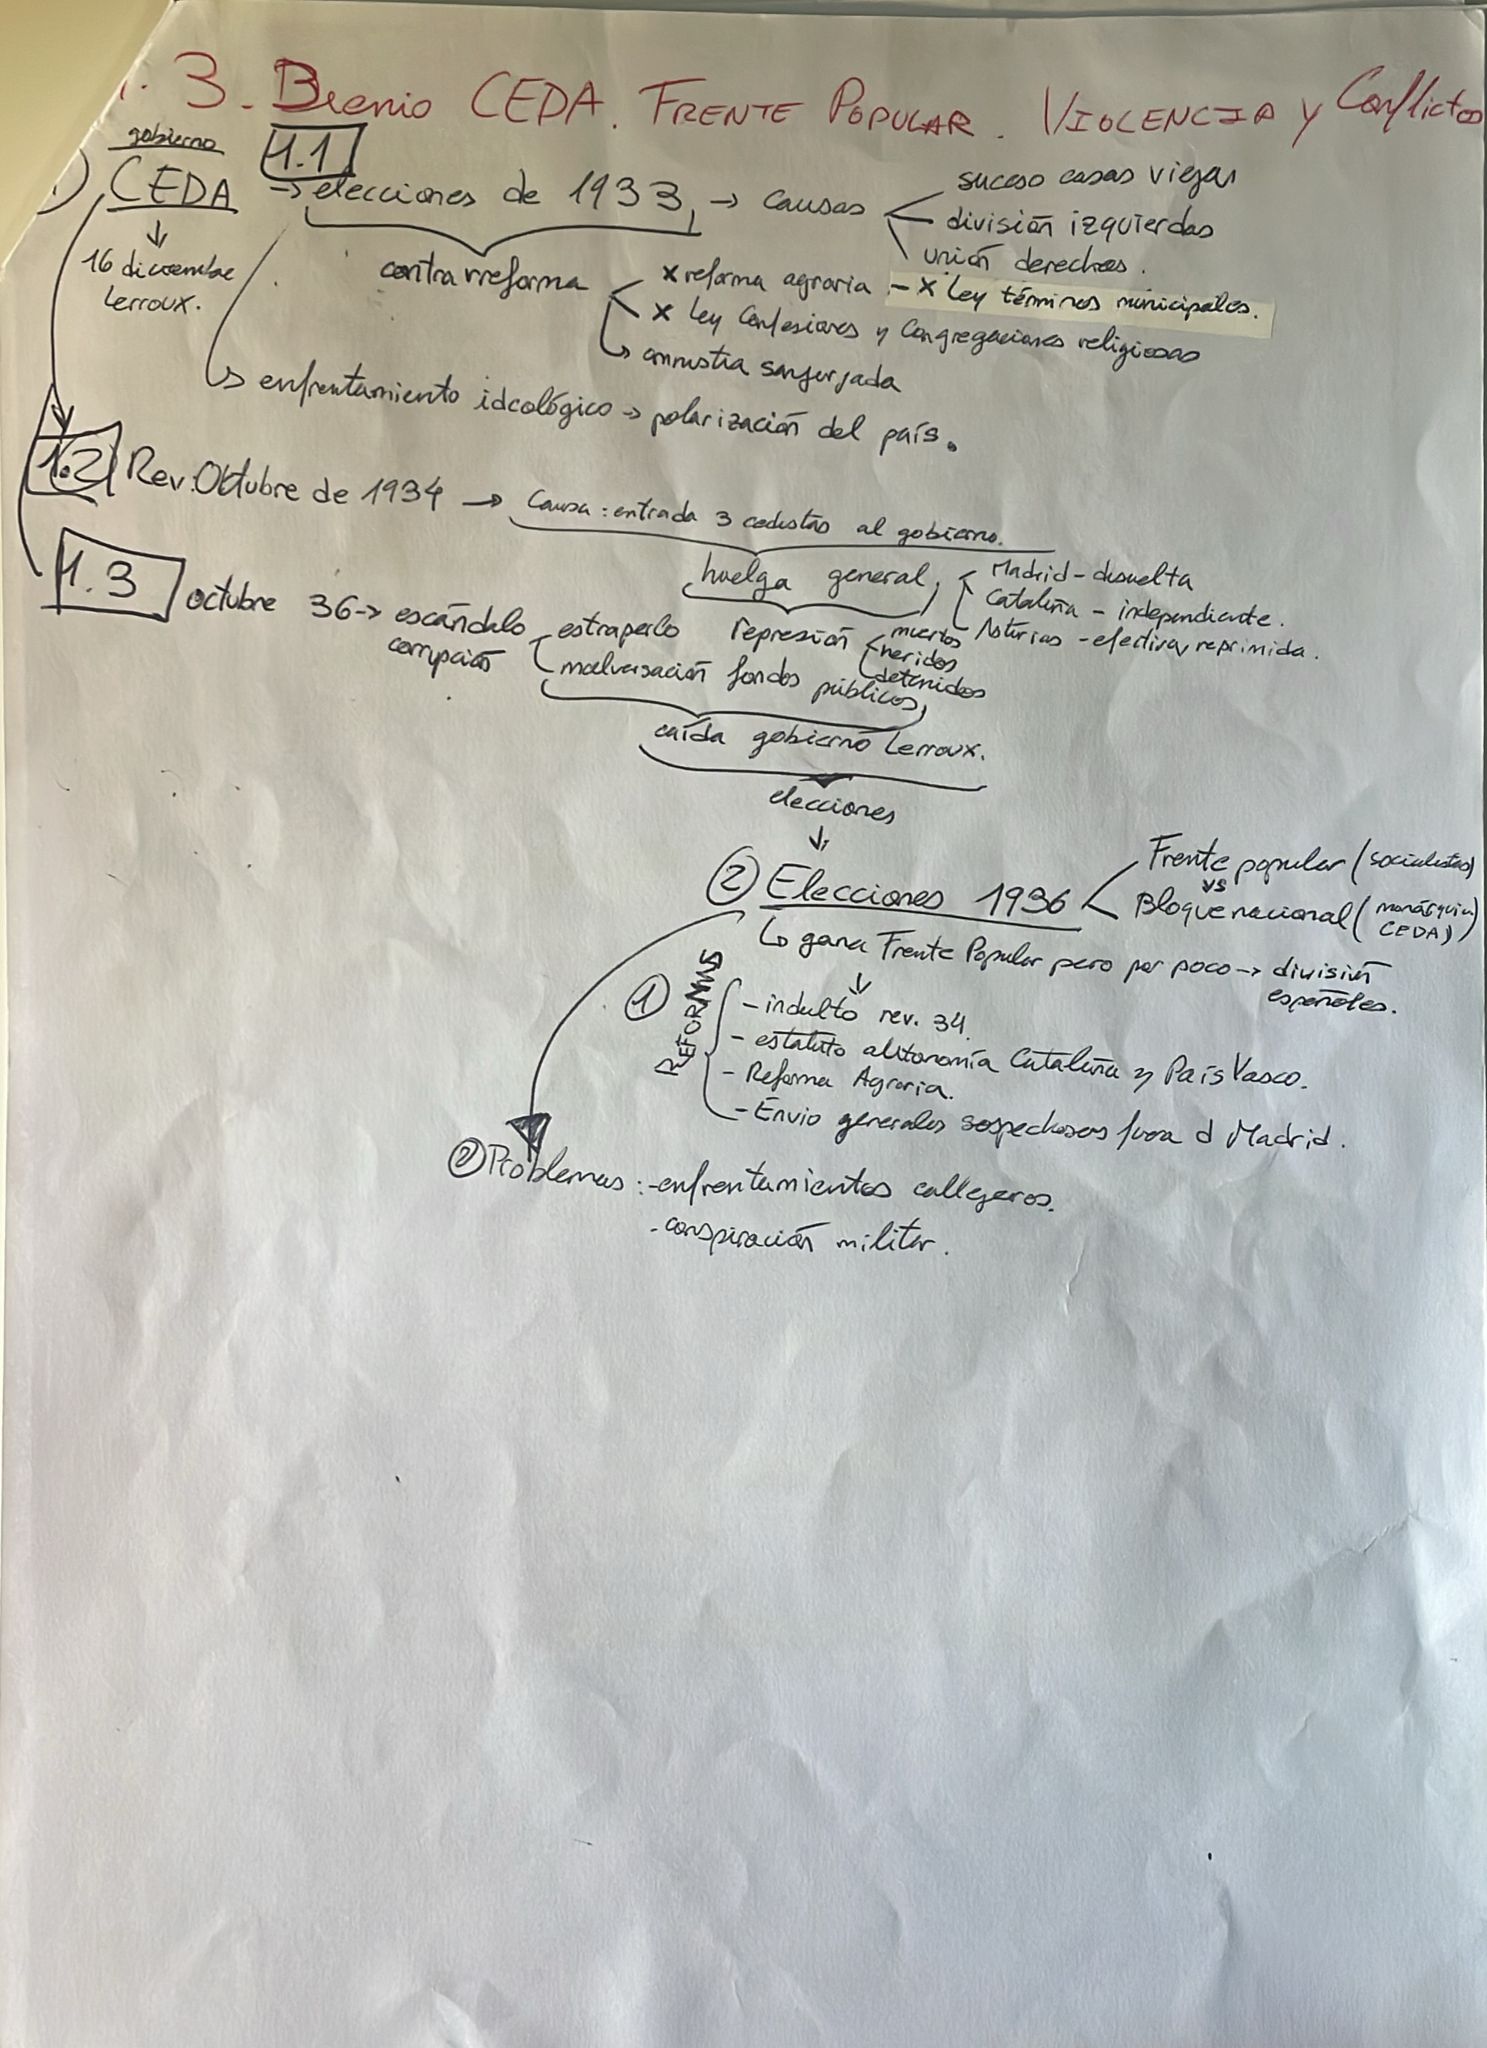 . 3. Bienio CEDA. FRENTE POPULAR. VIOLENCIA y Conflictos
gobierno
1) CEDA → 1.1 elecciones de 1933 → causas
suceso casas viejas
división izquierdas
unión derechas.
↓
16 diciembre
Lerroux.
contrarreforma
x reforma agraria - x Ley términos municipales.
x Ley Confesiones y Congregaciones religiosas
↳ amnistía sanjurjada
↳ enfrentamiento ideológico → polarización del país.
1.2 Rev. Octubre de 1934 → Causa: entrada 3 cedistas al gobierno.
huelga general
Madrid - disuelta
Cataluña - independiente.
Asturias - efectiva, reprimida.
represión
muertos
heridos
detenidos
1.3 octubre 36 → escándalo
corrupción
estraperlo
malversación fondos públicos
caída gobierno Lerroux.
elecciones
↓
② Elecciones 1936
Frente popular (socialistas)
vs
Bloque nacional (monárquicos
CEDA)
↳ gana Frente Popular pero por poco → división
españoles.
↓
① REFORMAS
- indulto rev. 34.
- estatuto autonomía Cataluña y País Vasco.
- Reforma Agraria.
- Envio generales sospechosos fuera d Madrid.
② Problemas: - enfrentamientos callejeros.
- conspiración militar.